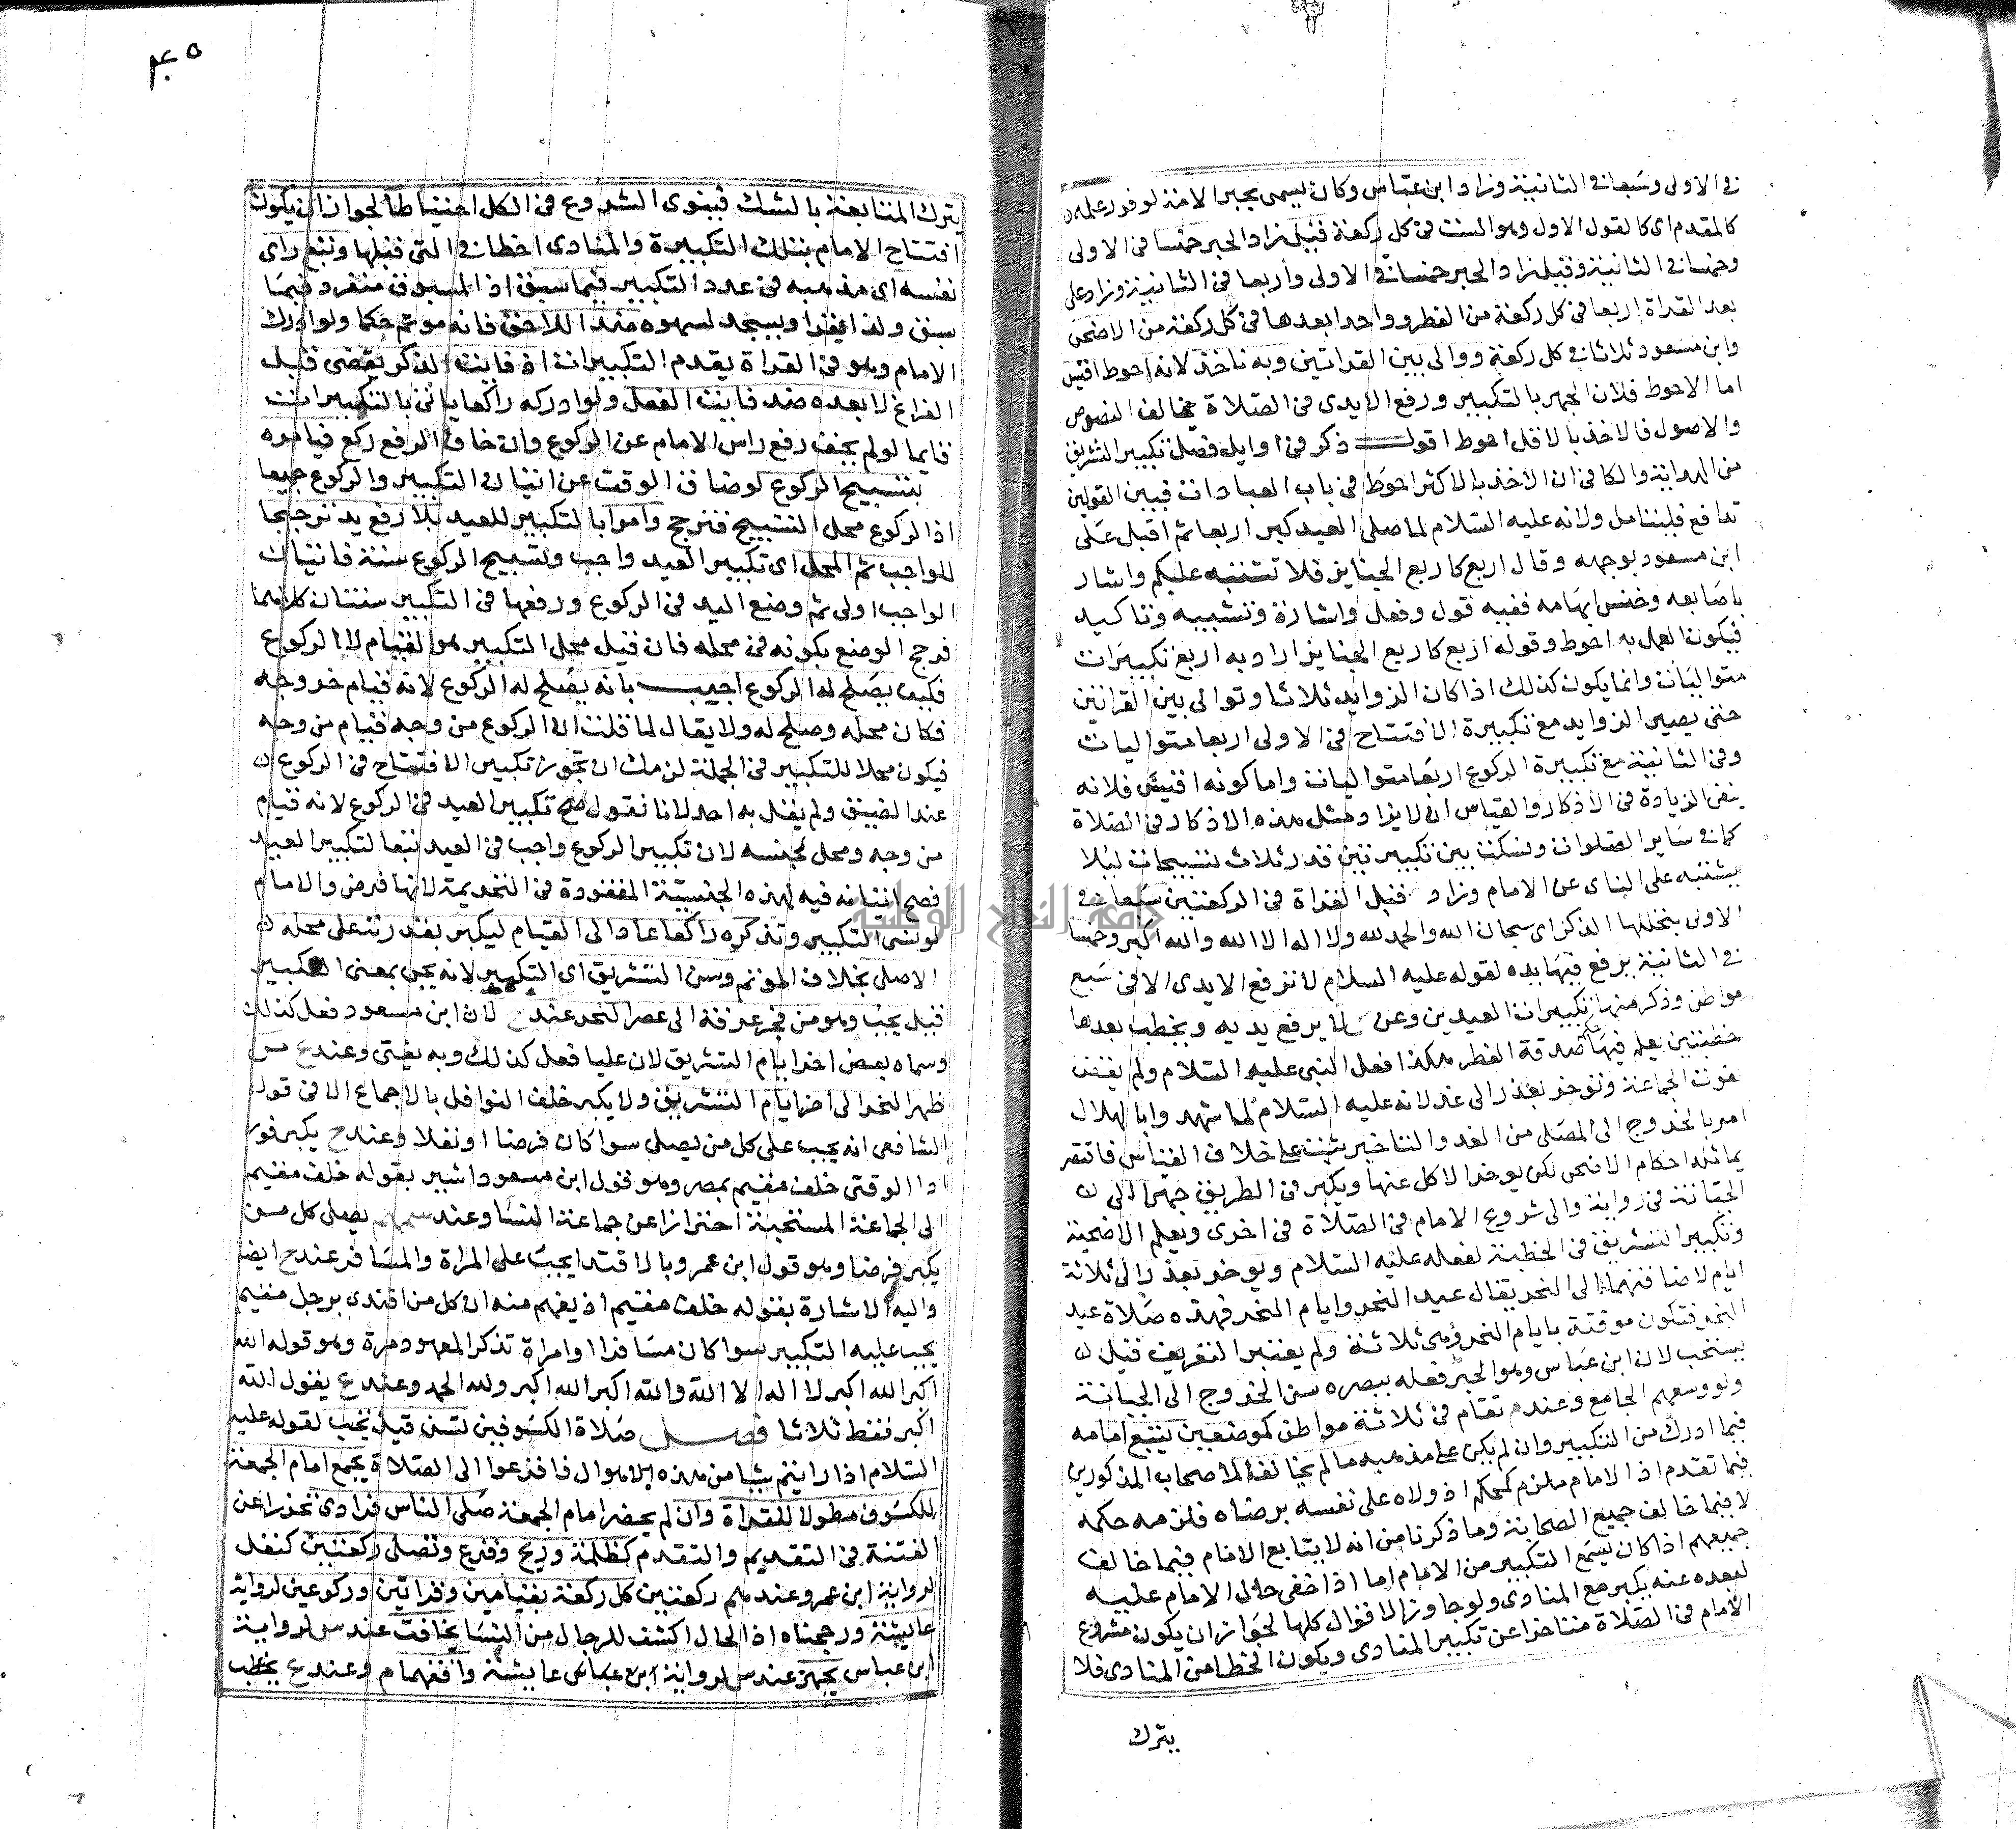 في الاولى وسبعا في الثانية وزاد ابن عباس وكان يسمى بحبر الامة لوفور علمه
كالمقدم اى كالقول الاول وهو الست في كل ركعة قيل زاد الحبر خمسا في الاولى
وخمسا في الثانية وقيل زاد الحبر خمسا في الاولى واربعا في الثانية وزاد على
بعد القراة اربعا في كل ركعة من الفطر وواحدا بعدها في كل ركعة من الاضحى
وابن مسعود ثلاثا في كل ركعة ووالى بين القراتين وبه ناخذ لانه احوط اقيس
اما الاحوط فلان الجهر بالتكبير ورفع الايدى في الصلاة يخالف النصوص
والاصول فالاخذ بالاقل احوط اقول ذكر في اوايل فصل تكبير التشريق
من الهداية والكافي ان الاخذ بالاكثر احوط في باب العبادات فبين القولين
تدافع فليتامل ولانه عليه السلام لما صلى العيد كبر اربعا ثم اقبل على
ابن مسعود بوجهه وقال اربع كاربع الجنايز فلا تشتبه عليكم واشار
باصابعه وخنس ابهامه ففيه قول وفعل واشارة وتشبيه وتاكيد
فيكون العمل به احوط وقوله اربع كاربع الجنايز اراد به اربع تكبيرات
متواليات وانما يكون كذلك اذا كان الزوايد ثلاثا وتوالى بين القراتين
حتى يصير الزوايد مع تكبيرة الافتتاح في الاولى اربعا متواليات
وفي الثانية مع تكبيرة الركوع اربعا متواليات واما كونه اقيس فلانه
ينفى الزيادة في الاذكار والقياس ان لا يزاد مثل هذه الاذكار في الصلاة
كما في ساير الصلوات ونسكت بين تكبيرتين قدر ثلاث تسبيحات ليلا
يشتبه على الناى عن الامام وزاد قبل القراة في الركعتين سبعا في
الاولى يتخللها الذكر اى سبحان الله والحمد لله ولا اله الا الله والله اكبر وخمسا
في الثانية يرفع فيها يده لقوله عليه السلام لا ترفع الايدى الا في سبع
مواطن وذكر منها تكبيرات العيدين وعن لا يرفع يديه ويخطب بعدها
خطبتين يعلم فيها صدقة الفطر هكذا فعل النبى عليه السلام ولم يقض
بفوت الجماعة وتوخر بعذر الى غد لانه عليه السلام لما شهدوا بالهلال
امر بالخروج الى المصلى من الغد والتاخير يثبت على خلاف القياس فاقتصر
يماثله احكام الاضحى لكن يوخر الاكل عنها ويكبر في الطريق جهرا الى
الجبانة في رواية والى شروع الامام في الصلاة في اخرى ويعلم الاضحية
وتكبير التشريق في الخطبة لفعله عليه السلام ويوخر بعذر الى ثلاثة
ايام لاضافتهما الى النحر يقال عيد النحر وايام النحر فهذه صلاة عيد
النحر فتكون موقتة بايام النحر وهى ثلاثة ولم يعتبر التعريف قيل
يستحب لان ابن عباس وهو الحبر فعله ببصره سن الخروج الى الجبانة
ولو وسعهم الجامع وعندم تقام في ثلاثة مواطن كموضعين يتبع امامه
فيما ادرك من التكبير وان لم يكن على مذهبه ما لم يخالف الاصحاب المذكورين
فيما تقدم اذ الامام ملزم كمحكم اذ ولاه على نفسه برضاه فلزمه حكمه
لا فيما خالف جميع الصحابة وما ذكرنا من انه لا يتابع الامام فيما خالف
جميعهم اذا كان يسمع التكبير من الامام اما اذا خفى حال الامام عليه
لبعده عنه يكبر مع المنادى ولو جاوز الاقوال كلها لجواز ان يكون مشروع
الامام في الصلاة متاخرا عن تكبير المنادى ويكون الخطا من المنادى فلا
يترك
٤٥
يترك المتابعة بالشك فينوى الشروع في الكل احتياطا لجواز ان يكون
افتتاح الامام بتلك التكبيرة والمنادى اخطا في التى قبلها وتبع راى
نفسه اى مذهبه في عدد التكبير فيما سبق اذ المسبوق منفرد فيما
سبق ولذا يقرا ويسجد لسهوه ضد اللاحق فانه موتم حكما ولو ادرك
الامام وهو في القراة يقدم التكبيرات اذ فايت الذكر يقضى قبل
الفراغ لا بعده ضد فايت الفعل ولو ادركه راكعا ياتى بالتكبيرات
قايما لو لم يخف رفع راس الامام عن الركوع وان خاف الرفع ركع فيامره
بتسبيح الركوع لو ضاق الوقت عن اتيان التكبير والركوع جميعا
اذ الركوع محل التسبيح فترجح وامرا بالتكبير للعيد بلا رفع يد ترجيحا
للواجب ثم المحل اى تكبير العيد واجب وتسبيح الركوع سنة فاتيان
الواجب اولى ثم وضع اليد في الركوع ورفعها في التكبير سنتان كلاهما
فرجح الوضع بكونه في محله فان قيل محل التكبير هو القيام لا الركوع
فكيف يصلح له الركوع اجيب بانه يصلح له الركوع لانه قيام خروجه
فكان محله وصلح له ولا يقال لما قلت ان الركوع من وجه قيام من وجه
فيكون محلا للتكبير في الجملة لزمك ان تجوز تكبير الافتتاح في الركوع
عند الضيق ولم يقل به احد لانا نقول صح تكبير العيد في الركوع لانه قيام
من وجه ومحل لجنسه لان تكبير الركوع واجب في العيد تبعا لتكبير العيد
فصح اتيانه فيه لهذه الجنسية المفقودة في التحريمة لانها فرض والامام
لو نسى التكبير وتذكره راكعا عاد الى القيام ليكبر بقدرته على محله
الاصلى بخلاف الموتم وسن التشريق اى التكبير لانه يجى بمعنى التكبير
قيل يجب وهو من فجر عرفة الى عصر النحر عندح لان ابن مسعود فعل كذلك
وسماه بعض اخر ايام التشريق لان عليا فعل كذلك وبه يفتى وعندع من
ظهر النحر الى اخر ايام التشريق ولا يكبر خلف النوافل بالاجماع الا في قول
الشافعى انه يجب على كل من يصلى سوا كان فرضا او نفلا وعندح يكبر فور
ادا الوقتى خلف مقيم بمصر وهو قول ابن مسعود اشير بقوله خلف مقيم
الى الجماعة المستحبة احترازا عن جماعة النسا وعند سم يصلى كل من
يكبر فرضا وهو قول ابن عمر وبالاقتدا يجب على المراة والمسافر عندح ايضا
واليه الاشارة بقوله خلف مقيم اذ يفهم منه ان كل من اقتدى برجل مقيم
يجب عليه التكبير سوا كان مسافرا او امراة تذكر المعهود مرة وهو قوله الله
اكبر الله اكبر لا اله الا الله والله اكبر الله اكبر ولله الحمد وعندع يقول الله
اكبر فقط ثلاثا فصل صلاة الكسوفين تسن قيل يجب لقوله عليه
السلام اذا رايتم شيا من هذه الاهوال فافزعوا الى الصلاة يجمع امام الجمعة
للكسوف مطولا للقراة وان لم يحضر امام الجمعة صلى الناس فرادى تحرزا عن
الفتنة في التقديم والتقدم كظلمة وريح وفزع وتصلى ركعتين كنفل
لرواية ابن عمر وعندهم ركعتين كل ركعة بقيامين وقراتين وركوعين لرواية
عايشة ورجحناه اذ الحال اكشف للرجال من النسا يخافت عندس لرواية
ابن عباس يجهر عندس لرواية ابن عباس عايشة وافقهما م وعندع يخطب
جامعة النجاح الوطنية